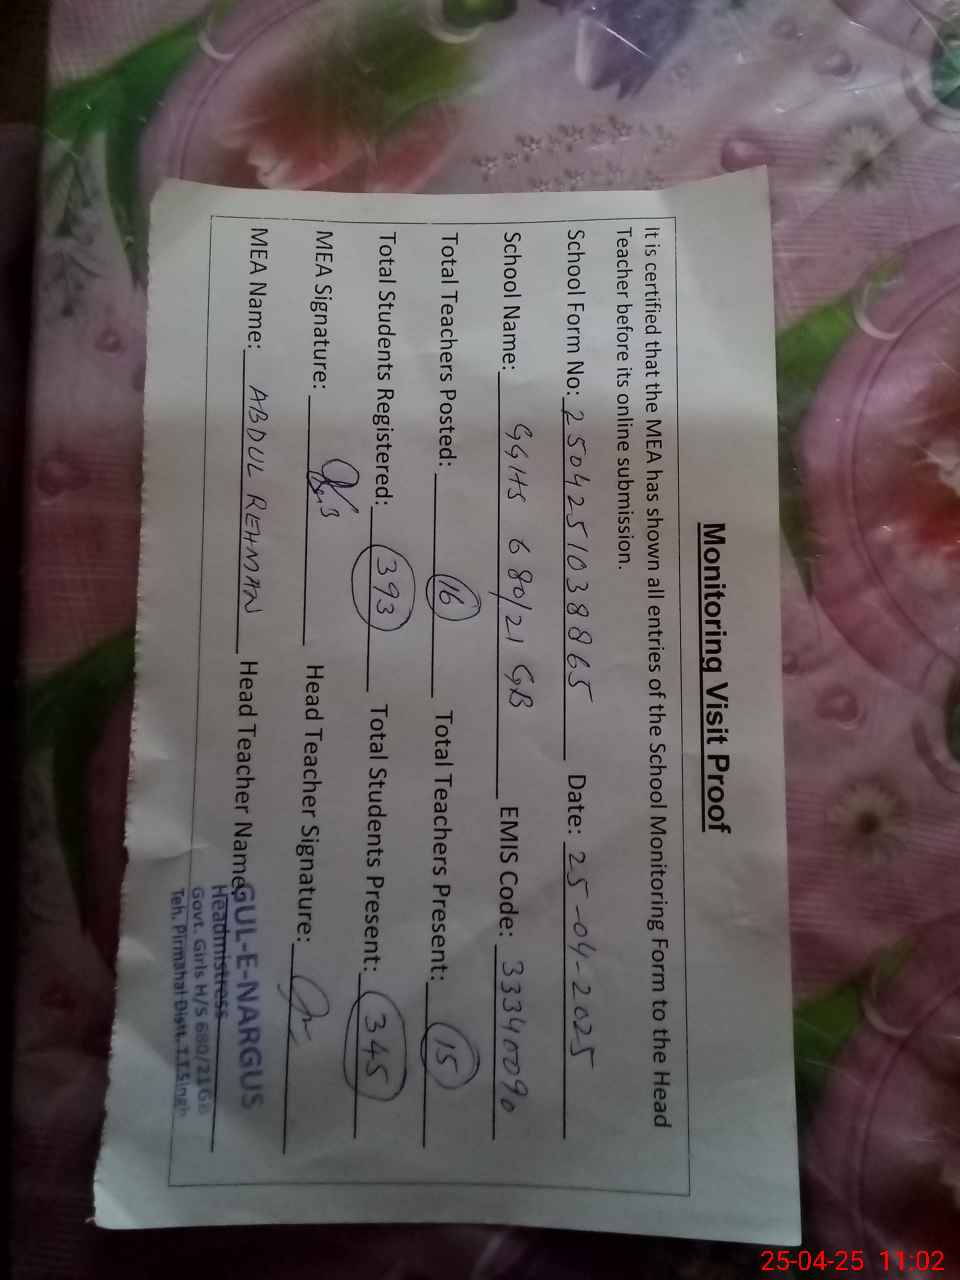 Monitoring Visit Proof
It is certified that the MEA has shown all entries of the School Monitoring Form to the Head
Teacher before its online submission.
School Form No: 2504251038865 Date: 25-04-2025
School Name: GGHS 680/21 GB EMIS Code: 33340090
Total Teachers Posted: 16 Total Teachers Present: 15
Total Students Registered: 393 Total Students Present: 345
MEA Signature: Head Teacher Signature:
MEA Name: ABDUL REHMAN Head Teacher Name:
GUL-E-NARGUS
Headmistress
Govt. Girls H/S 680/21GB
Teh. Pirmahal Distt. T.T.Singh
25-04-25 11:02